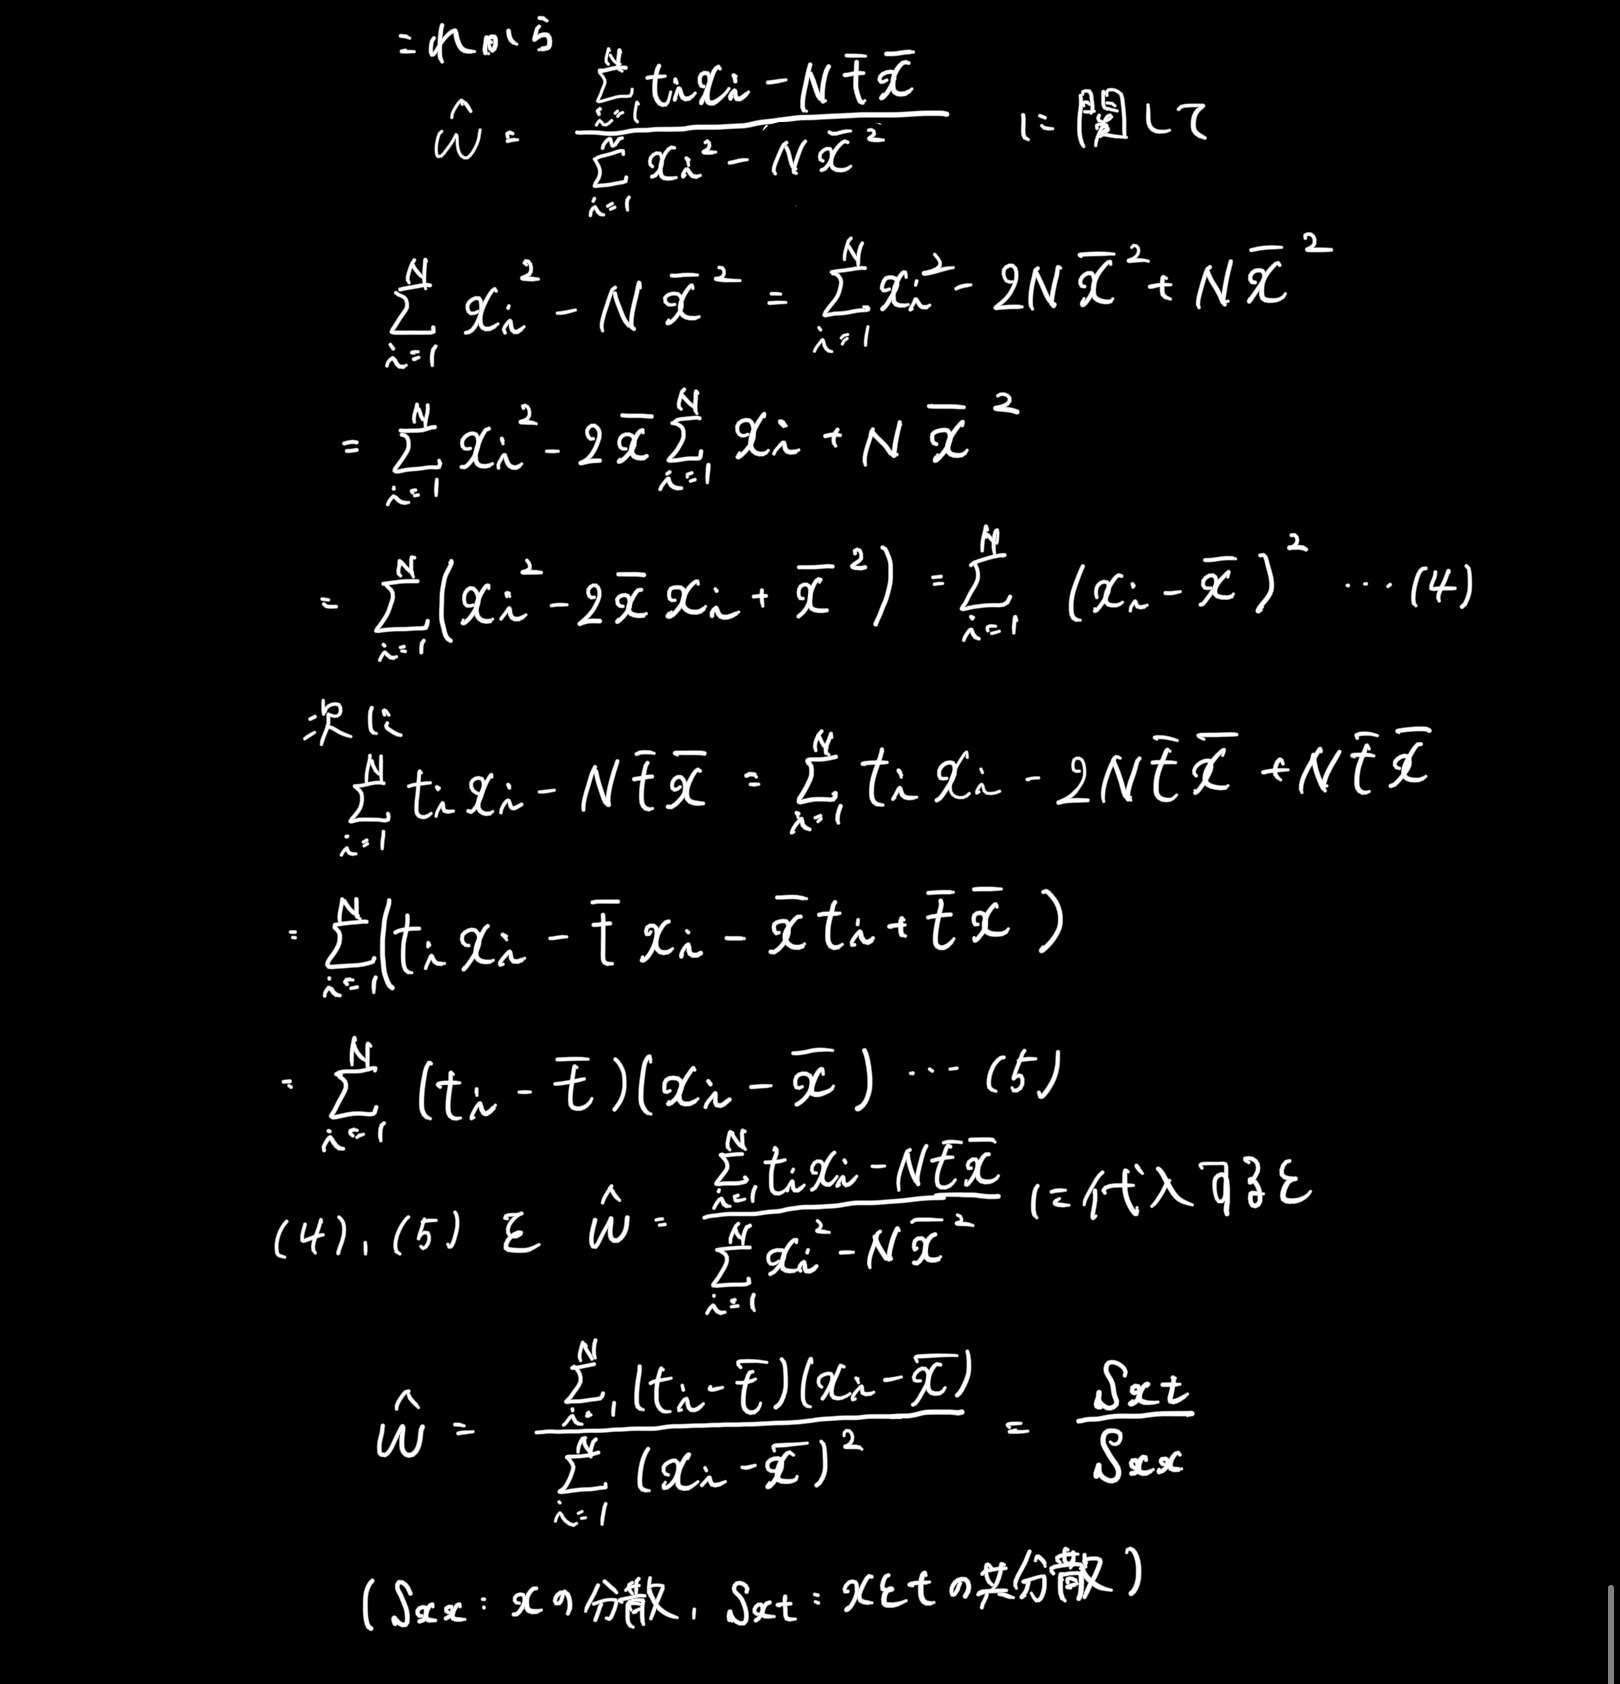 これから
ŵ = (Σ_{i=1}^{N} t_i x_i − N t̄ x̄) / (Σ_{i=1}^{N} x_i² − N x̄²) に関して
Σ_{i=1}^{N} x_i² − N x̄² = Σ_{i=1}^{N} x_i² − 2N x̄² + N x̄²
= Σ_{i=1}^{N} x_i² − 2 x̄ Σ_{i=1}^{N} x_i + N x̄²
= Σ_{i=1}^{N} (x_i² − 2 x̄ x_i + x̄²) = Σ_{i=1}^{N} (x_i − x̄)² ⋯ (4)
次に
Σ_{i=1}^{N} t_i x_i − N t̄ x̄ = Σ_{i=1}^{N} t_i x_i − 2N t̄ x̄ + N t̄ x̄
= Σ_{i=1}^{N} (t_i x_i − t̄ x_i − x̄ t_i + t̄ x̄)
= Σ_{i=1}^{N} (t_i − t̄)(x_i − x̄) ⋯ (5)
(4), (5) を ŵ = (Σ_{i=1}^{N} t_i x_i − N t̄ x̄) / (Σ_{i=1}^{N} x_i² − N x̄²) に代入すると
ŵ = (Σ_{i=1}^{N} (t_i − t̄)(x_i − x̄)) / (Σ_{i=1}^{N} (x_i − x̄)²) = S_{xt} / S_{xx}
(S_{xx} : xの分散, S_{xt} : xとtの共分散)